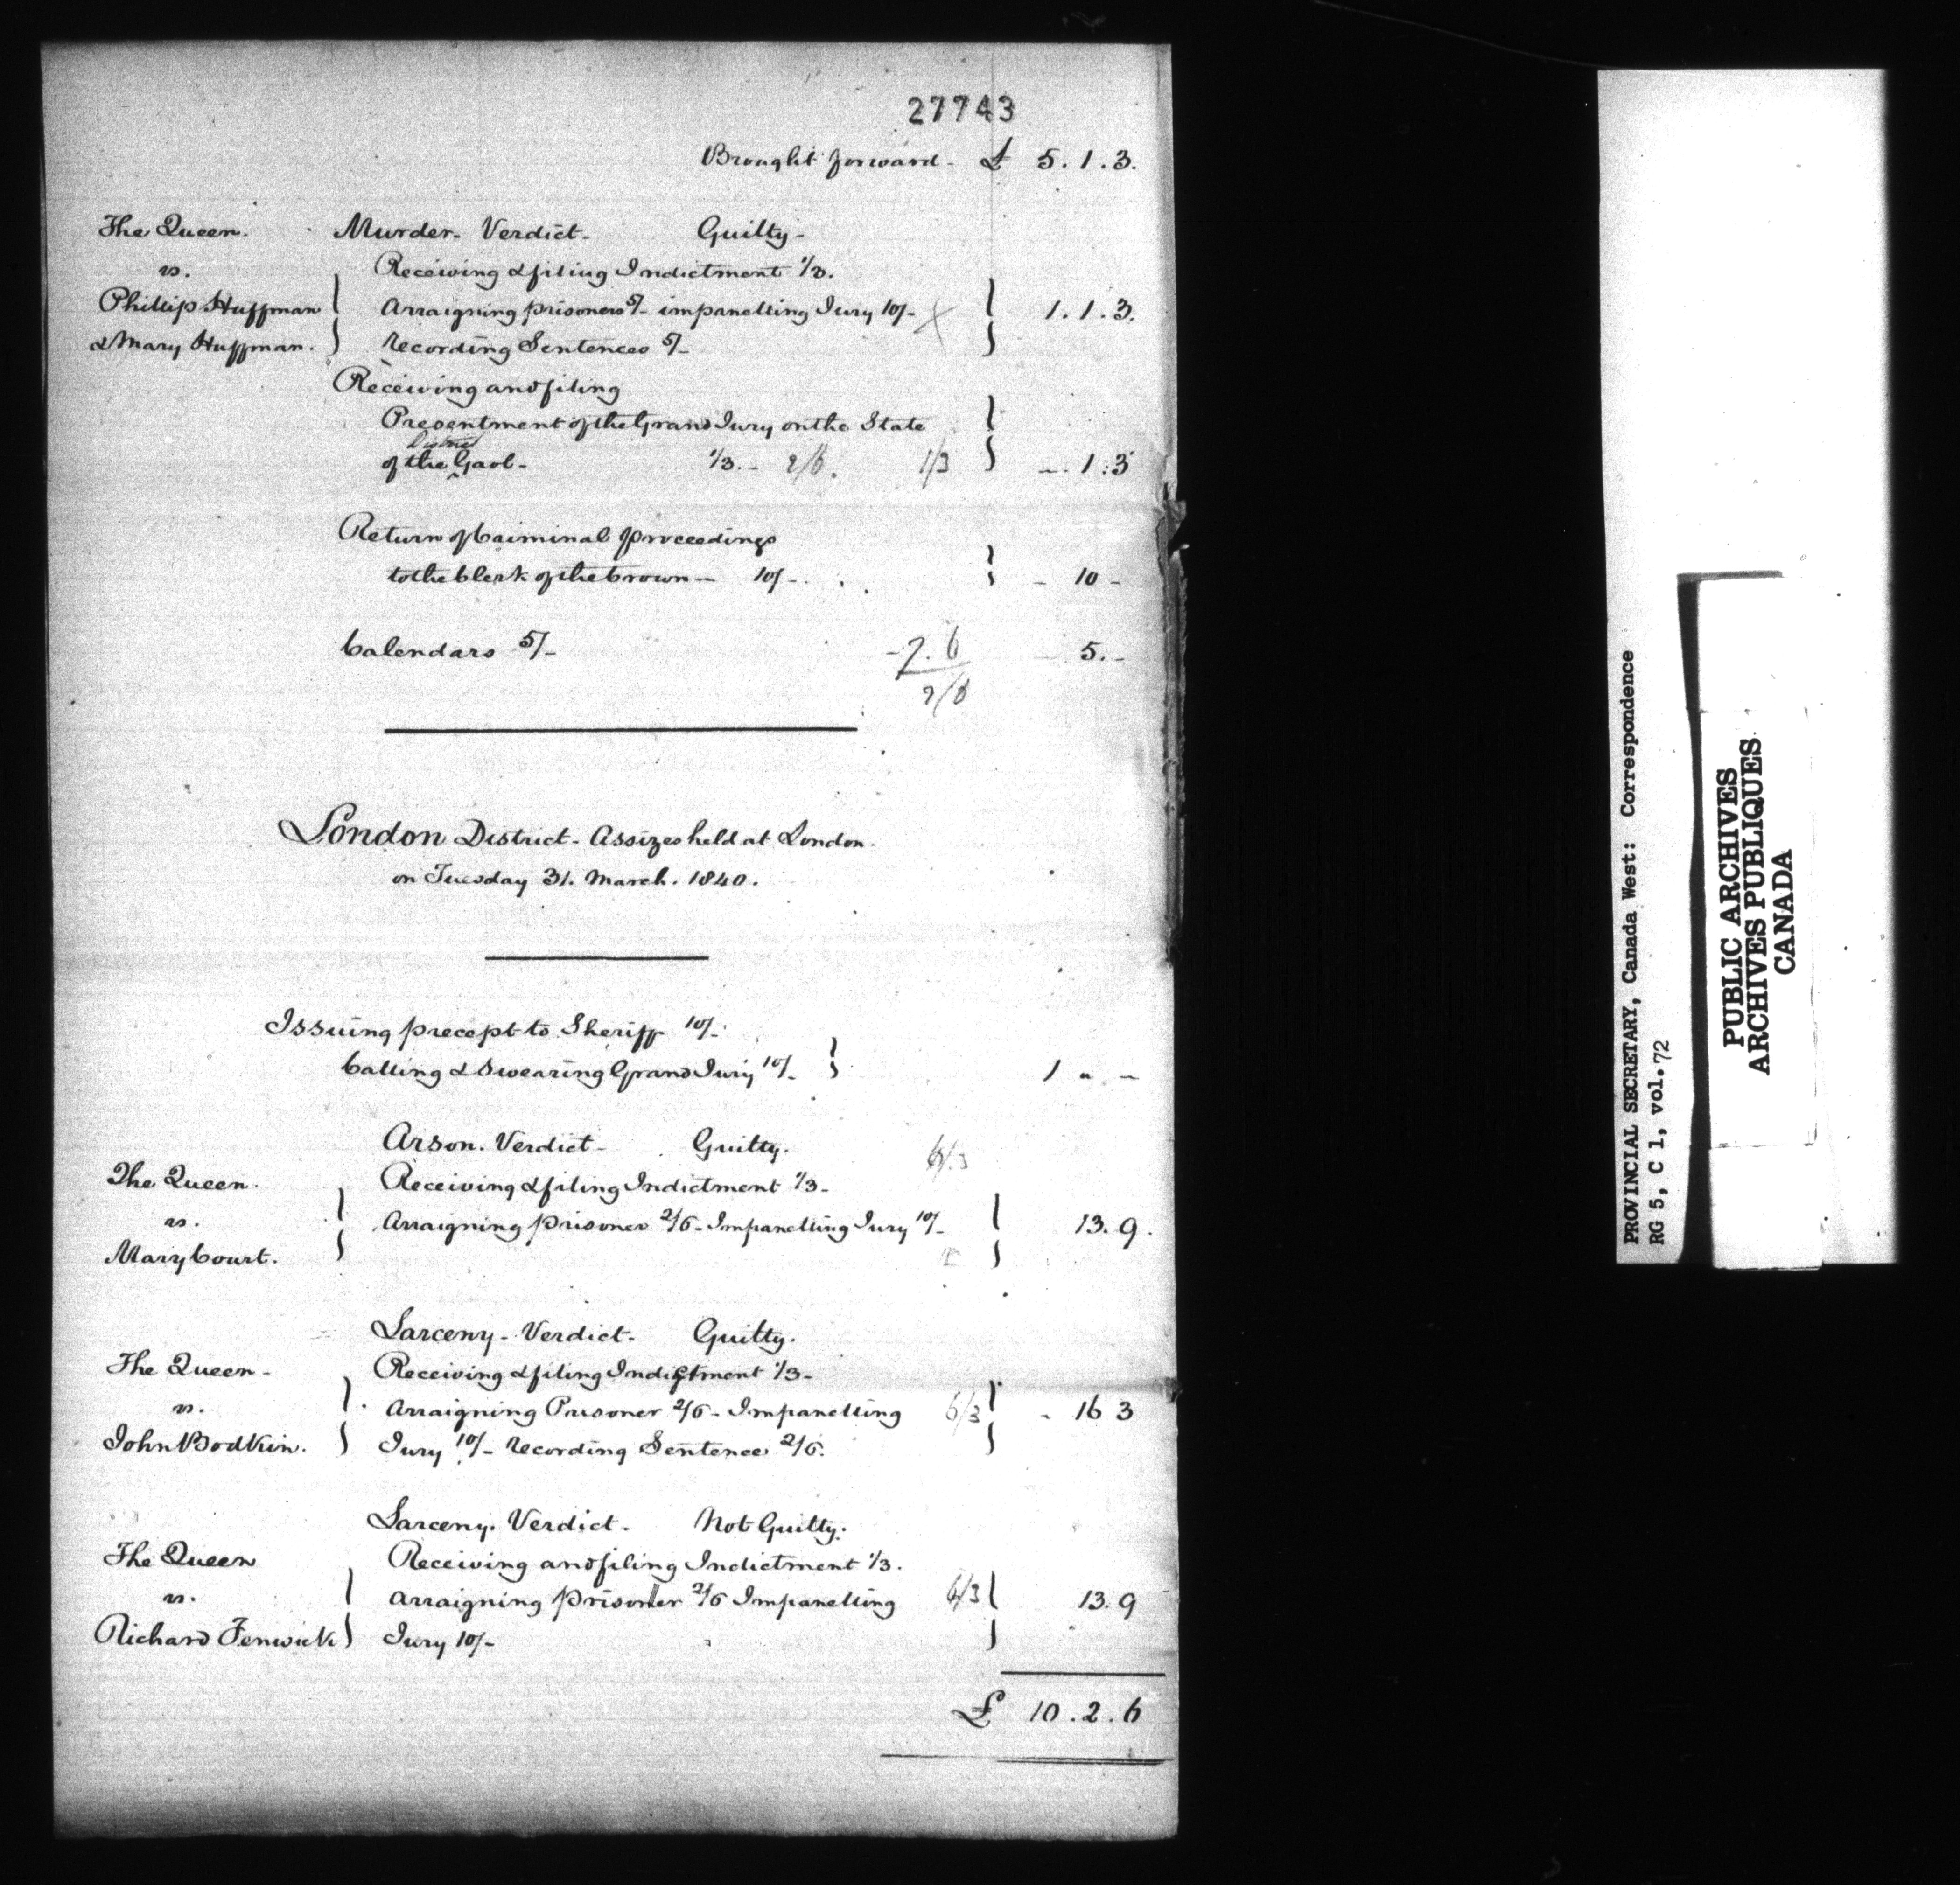 27743
Brought forward - £ 5.1.3.
The Queen. Murder- Verdict- Guilty-
vs. Receiving & filing Indictment 1/3.
Phillip Huffman Arraigning prisoners 5/- impanelling Jury 10/- 1.1.3.
& Mary Huffman. Recording Sentences 5/-
Receiving and filing
Presentment of the Grand Jury on the State
District
of the Gaol- 1/3.- 2/6. 1/3 -.1.3
Return of Criminal proceedings
to the Clerk of the Crown - 10/- - 10 -
Calendars 5/- -7.6 5.-
2/6
London District- Assizes held at London.
on Tuesday 31. March. 1840.
Issuing precept to Sheriff 10/-
Calling & Swearing Grand Jury 10/- 1 " -
Arson. Verdict- Guilty. 6/3
The Queen. Receiving & filing Indictment 1/3-
vs. Arraigning prisoner 2/6- Impanelling Jury 10/- 13.9.
Mary Court.
Larceny- Verdict- Guilty.
The Queen- Receiving & filing Indictment 1/3-
vs. Arraigning Prisoner 2/6- Impanelling 6/3 - 16 3
John Bodkin. Jury 10/- recording Sentence 2/6.
Larceny. Verdict- Not Guilty.
The Queen Receiving and filing Indictment 1/3.
vs. Arraigning prisoner 2/6 Impanelling 6/3 13.9
Richard Fenwick Jury 10/-
£ 10.2.6
PROVINCIAL SECRETARY, Canada West: Correspondence
RG 5, C 1, vol.72
PUBLIC ARCHIVES
ARCHIVES PUBLIQUES
CANADA